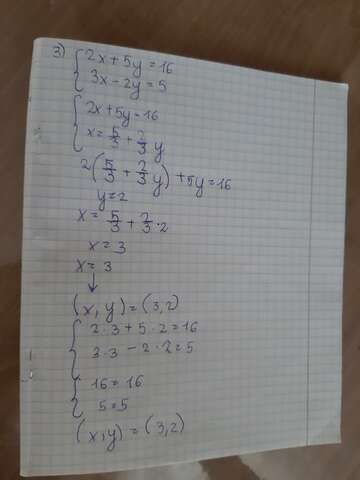 3) { 2x + 5y = 16
3x - 2y = 5
{ 2x + 5y = 16
x = 5/3 + 2/3 y
2(5/3 + 2/3 y) + 5y = 16
y = 2
x = 5/3 + 2/3 · 2
x = 3
x = 3
↓
(x, y) = (3, 2)
{ 2 · 3 + 5 · 2 = 16
3 · 3 - 2 · 2 = 5
{ 16 = 16
5 = 5
(x, y) = (3, 2)